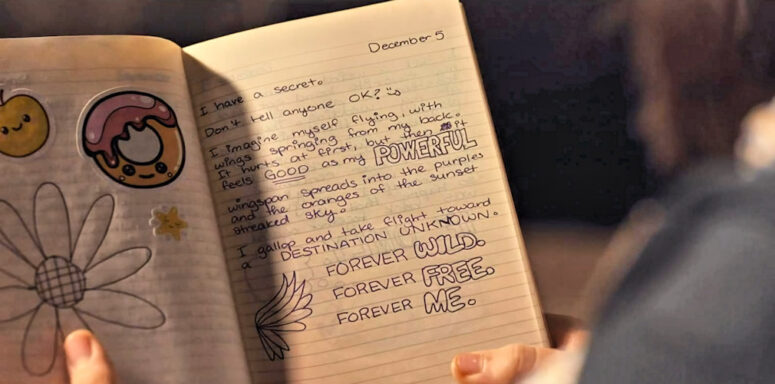 December 5
I have a secret.
Don't tell anyone OK?
I imagine myself flying, with
wings springing from my back.
It hurts at first, but then it
feels GOOD as my POWERFUL
wingspan spreads into the purples
and the oranges of the sunset
streaked sky.
I gallop and take flight toward
a DESTINATION UNKNOWN.
FOREVER WILD.
FOREVER FREE.
FOREVER ME.